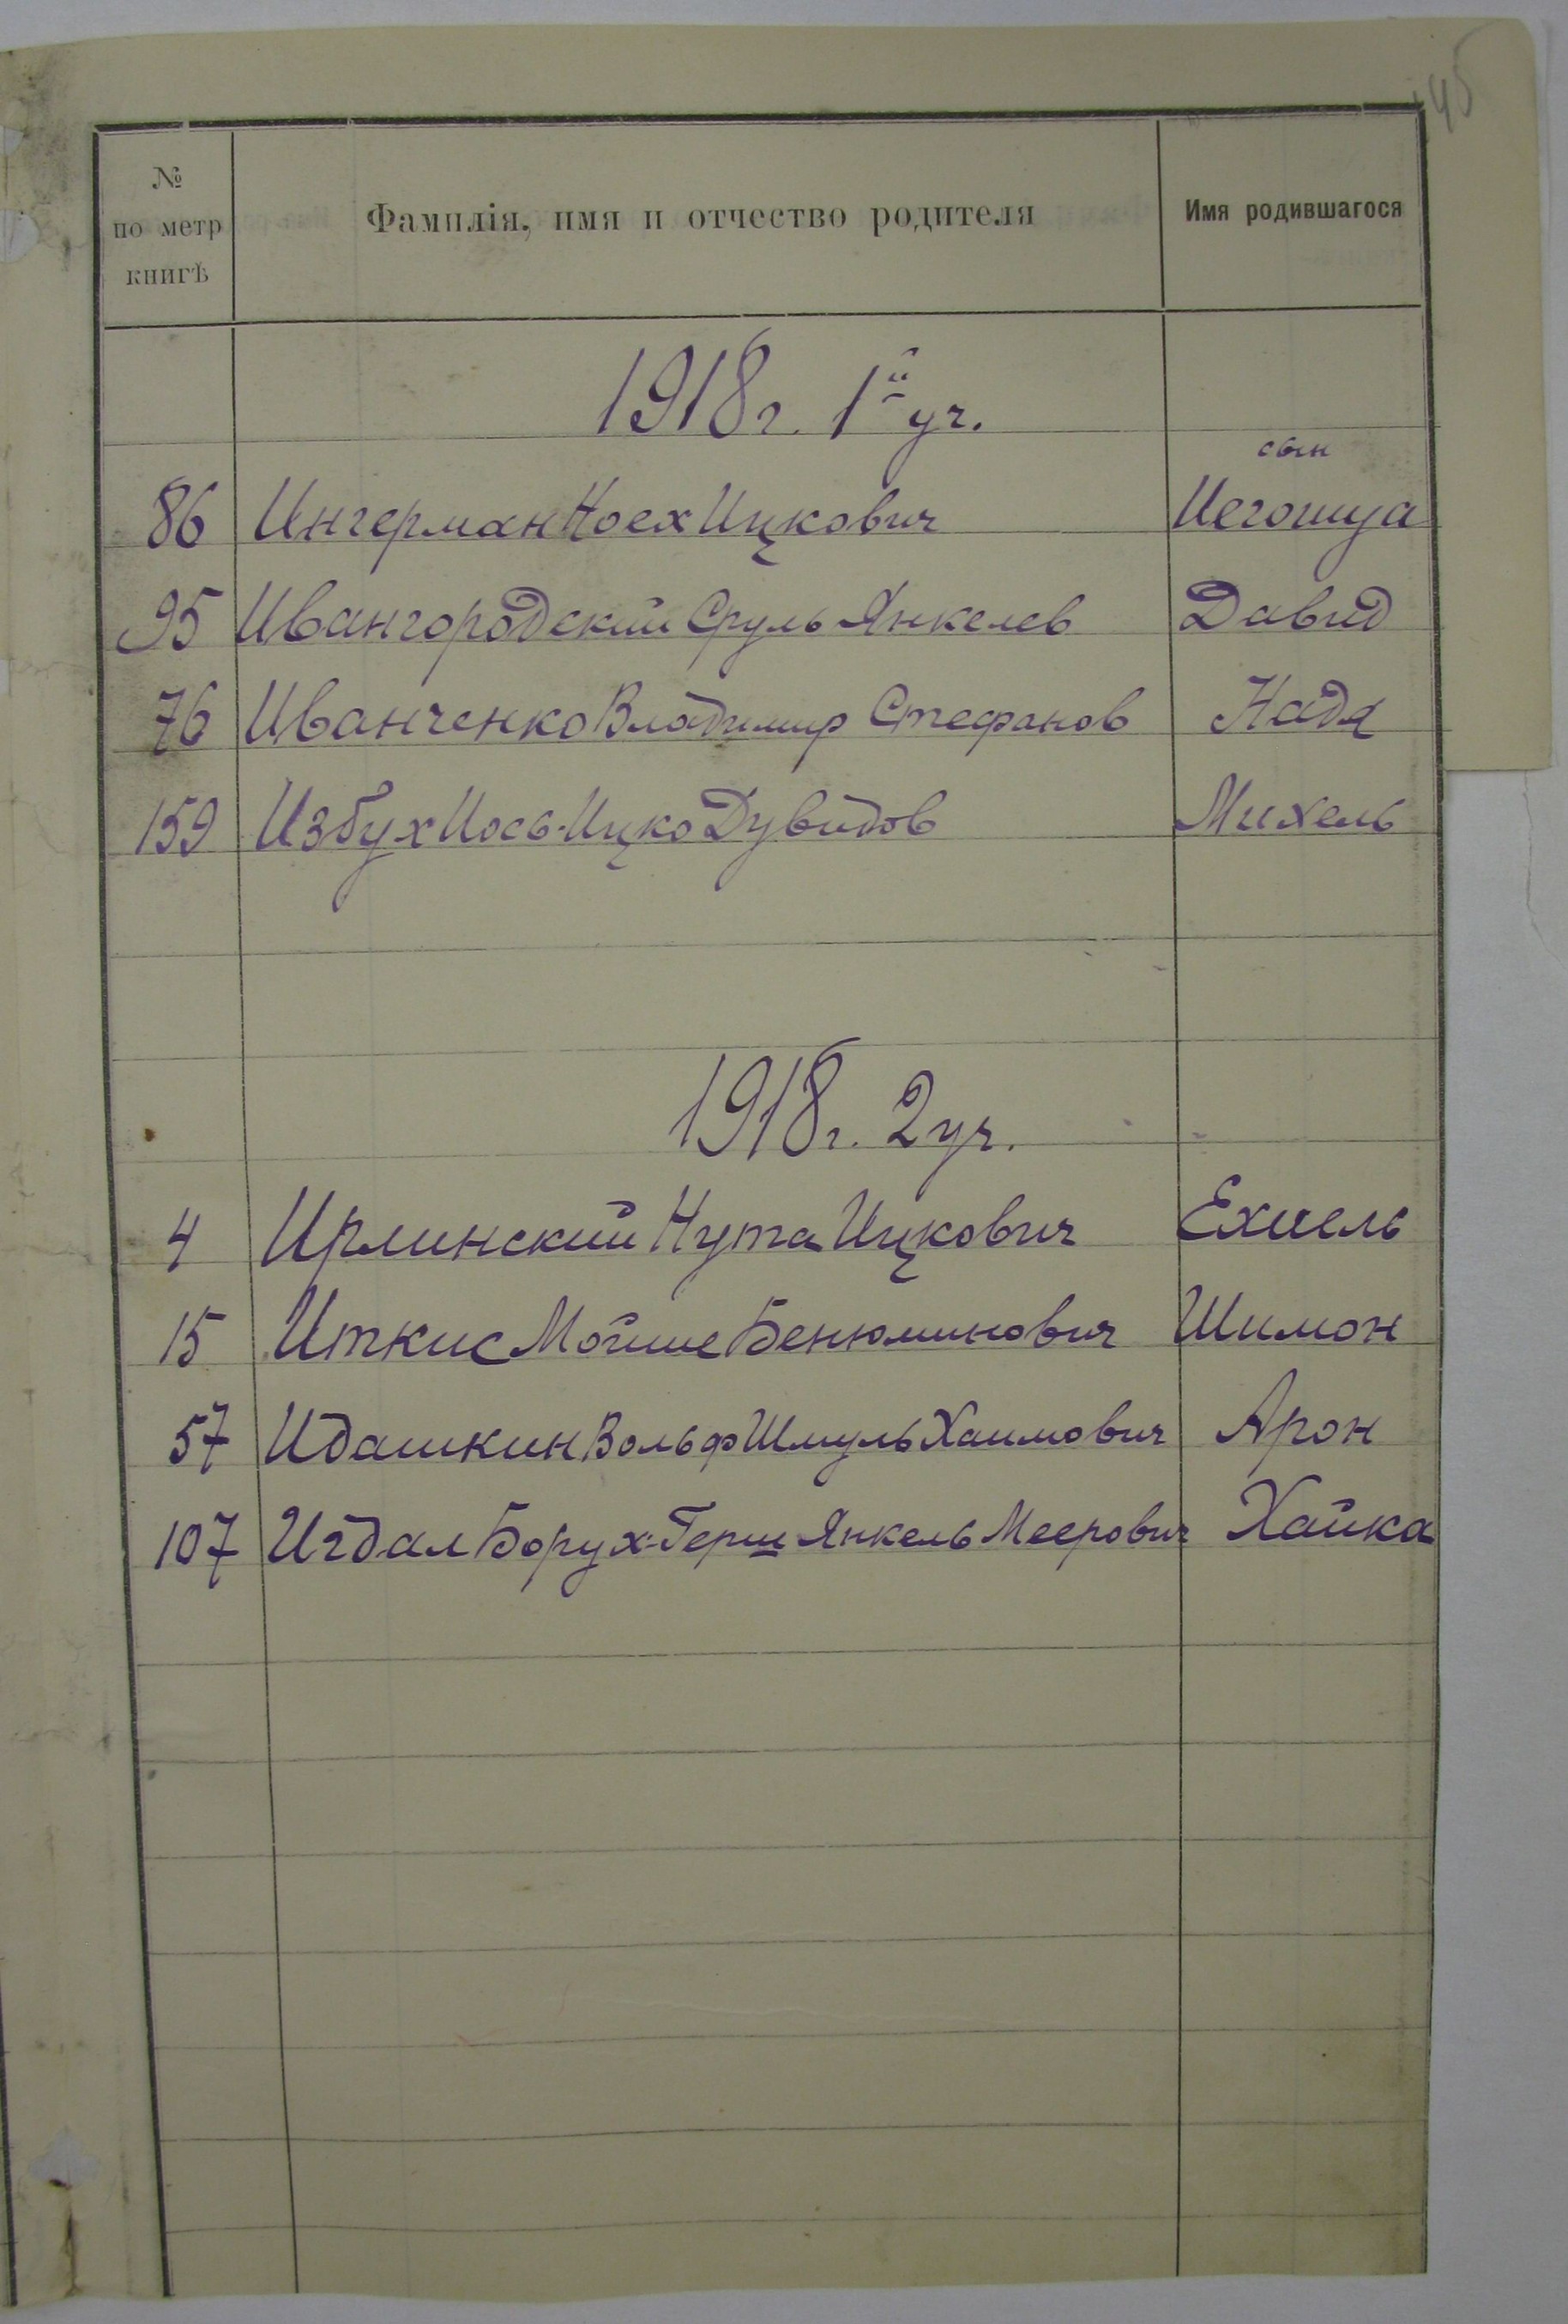 145
№ по метр книгѣ Фамилія, имя и отчество родителя Имя родившагося
1918 г. 1й уч.
сын
86 Ингерман Ноех Ицкович Иегошуа
95 Ивангородский Сруль Янкелев Давид
76 Иванченко Владимир Стефанов Надя
159 Избух Иось-Ицко Дувидов Михель
1918 г. 2 уч.
4 Ирлинский Нута Ицкович Ехиель
15 Иткис Мойше Бенюминович Шимон
57 Идашкин Вольф Шмуль Хаимович Арон
107 Игдал Борух-Герш Янкель Меерович Хайка